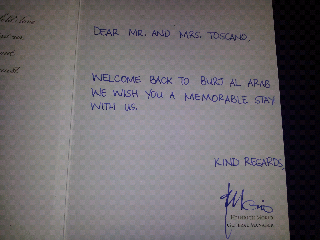 DEAR MR. AND MRS. TOSCANO,
WELCOME BACK TO BURJ AL ARAB
WE WISH YOU A MEMORABLE STAY
WITH US.
KIND REGARDS,
GENERAL MANAGER